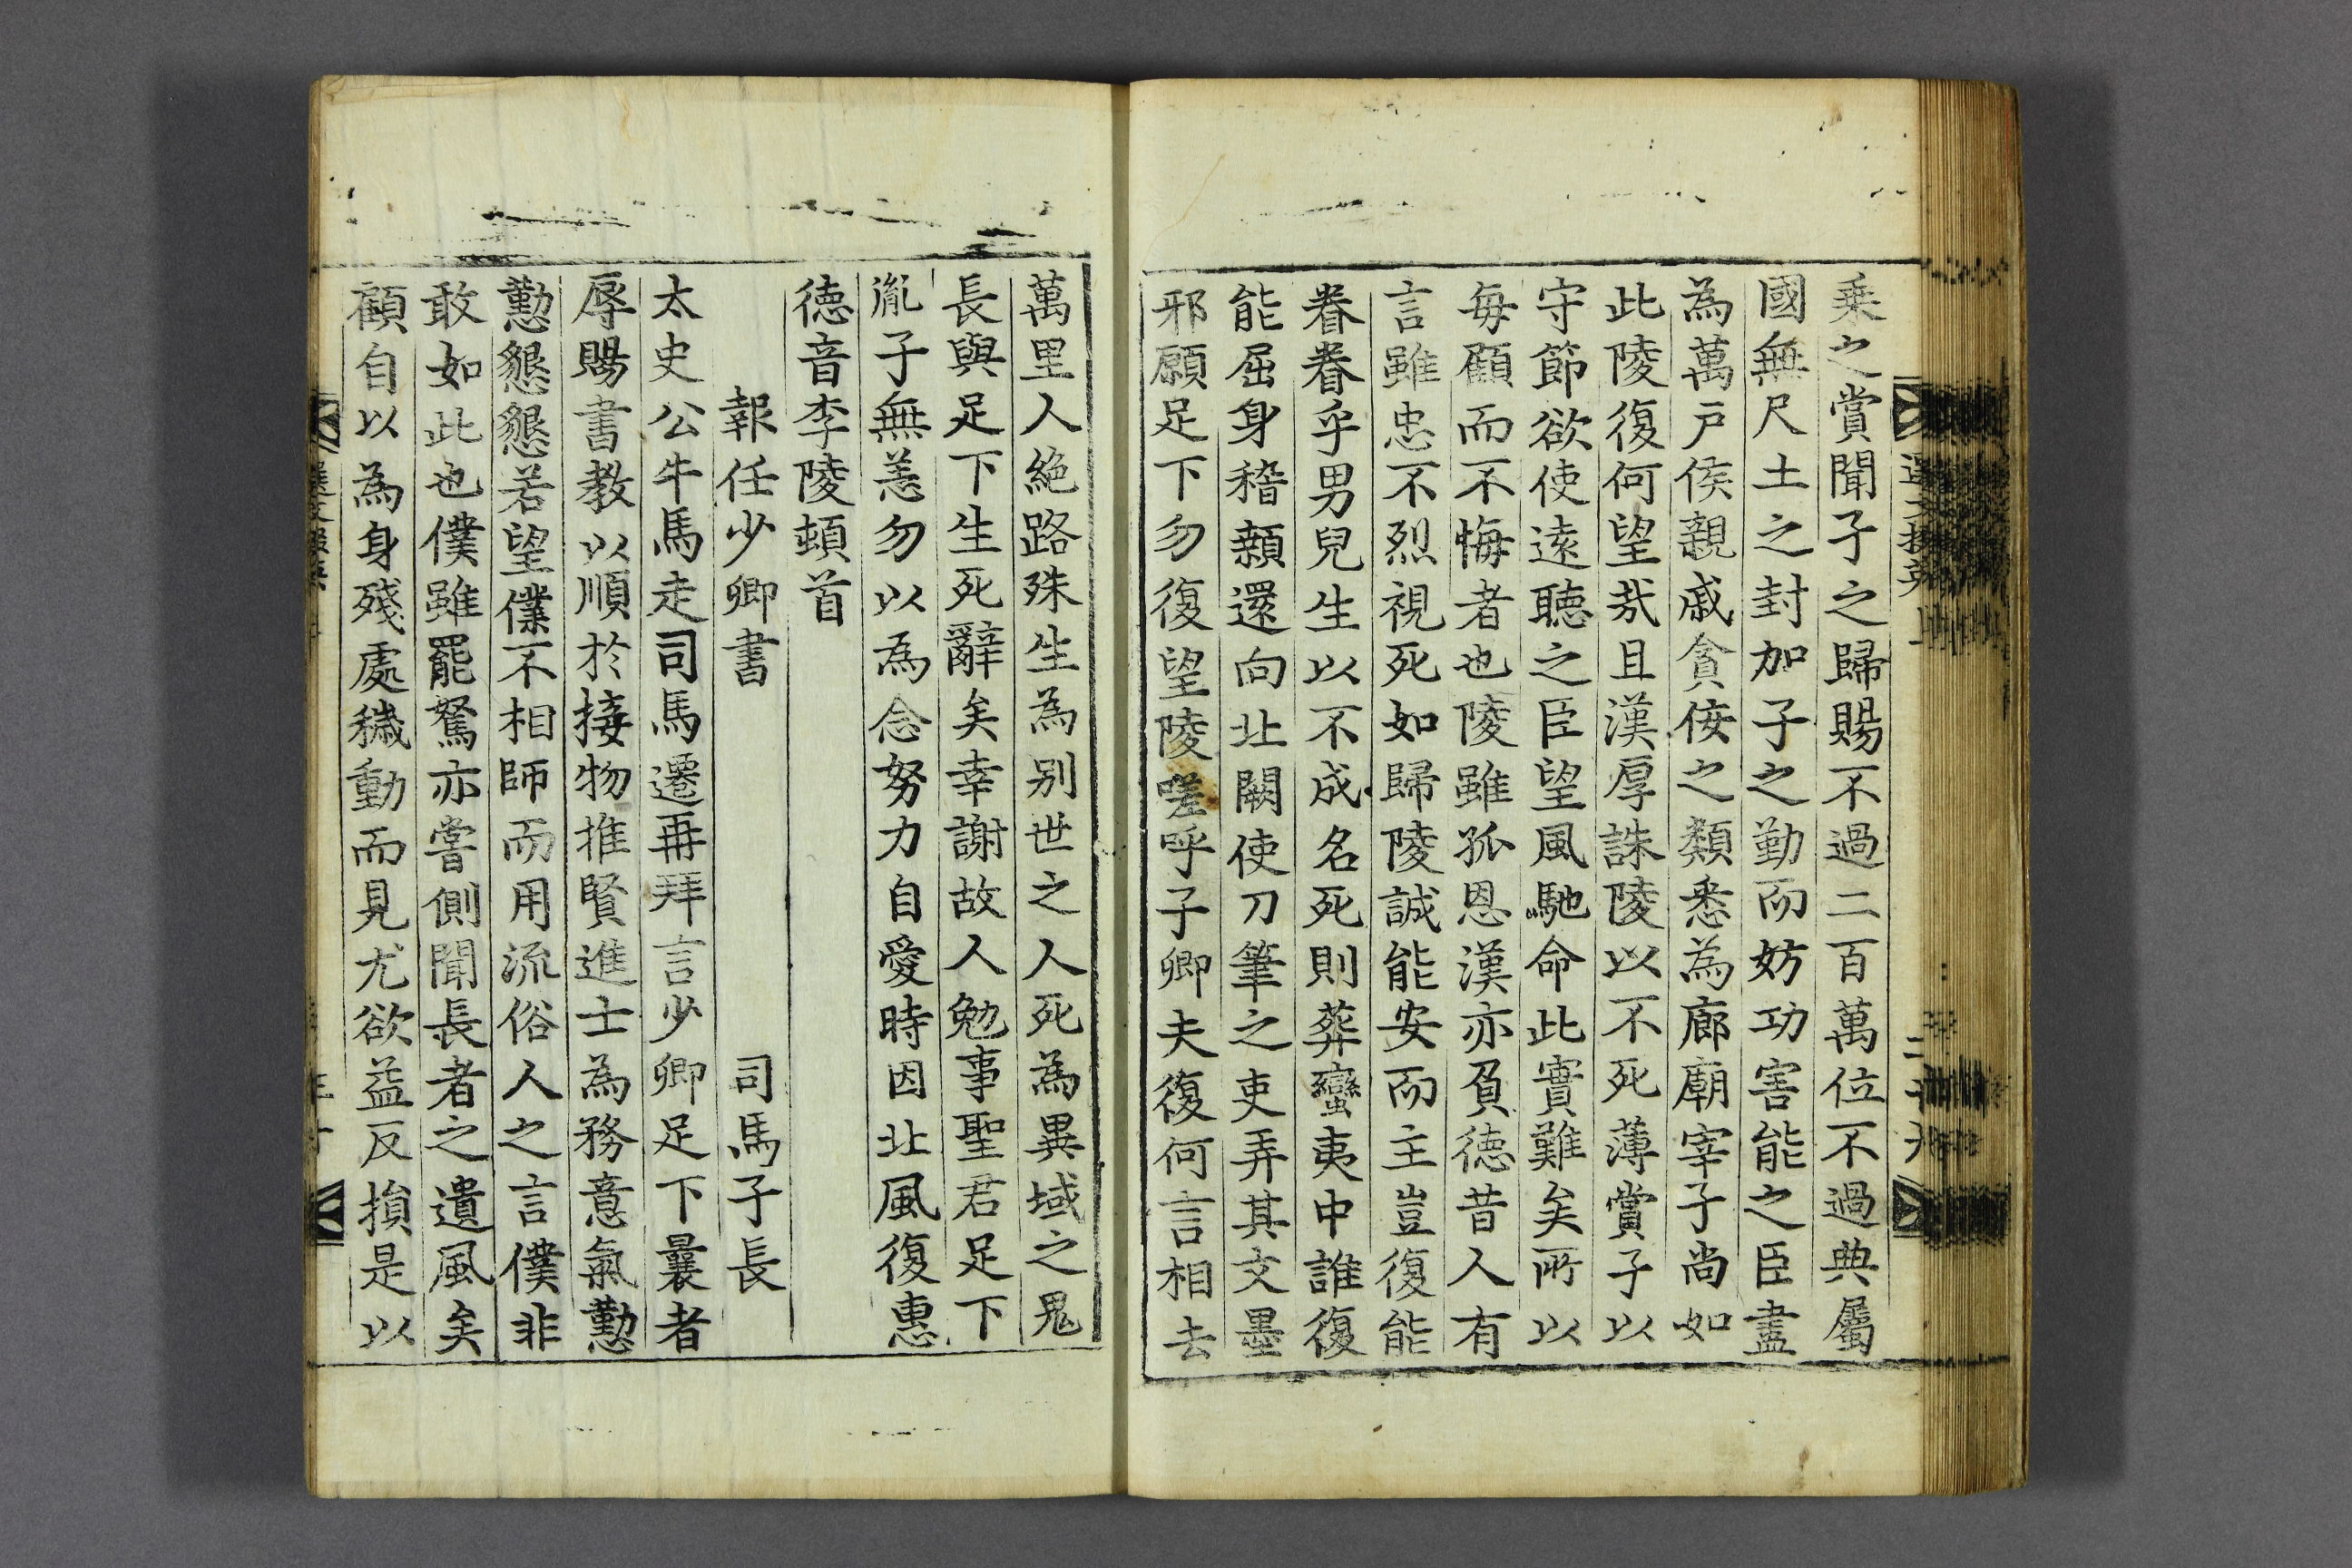 乗之賞聞子之歸賜不過二百萬位不過典屬
國無尺土之封加子之勤而妨功害能之臣盡
為萬戸侯親戚貪侫之類悉為廊廟宰子尚如
此陵復何望哉且漢厚誅陵以不死薄賞子以
守節欲使逺聽之臣望風馳命此實難矣所以
每顧而不悔者也陵雖孤恩漢亦負徳昔人有
言雖忠不烈視死如歸陵誠能安而主豈復能
眷眷乎男兒生以不成名死則葬蠻夷中誰復
能屈身稽顙還向北闕使刀筆之吏弄其文墨
邪願足下勿復望陵嗟呼子卿夫復何言相去
萬里人絶路殊生為別世之人死為異域之鬼
長與足下生死辭矣幸謝故人勉事聖君足下
胤子無恙勿以為念努力自愛時因北風復惠
徳音李陵頓首
報任少卿書 司馬子長
太史公牛馬走司馬遷再拜言少卿足下曩者
辱賜書教以順於接物推賢進士為務意氣懃
懃懇懇若望僕不相師而用流俗人之言僕非
敢如此也僕雖罷駑亦嘗側聞長者之遺風矣
顧自以為身殘處穢動而見尤欲益反損是以